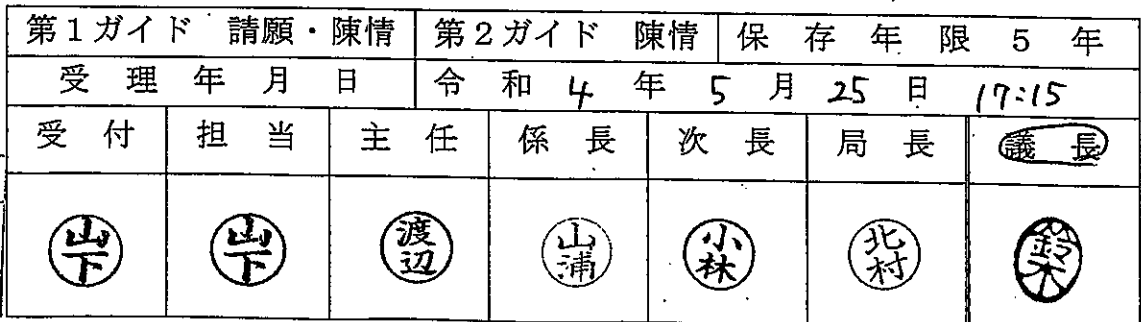 第1ガイド 請願・陳情 第2ガイド 陳情 保存年限5年
受理年月日 令和4年5月25日 17:15
受付 担当 主任 係長 次長 局長 議長
山下 山下 渡辺 山浦 小林 北村 鈴木